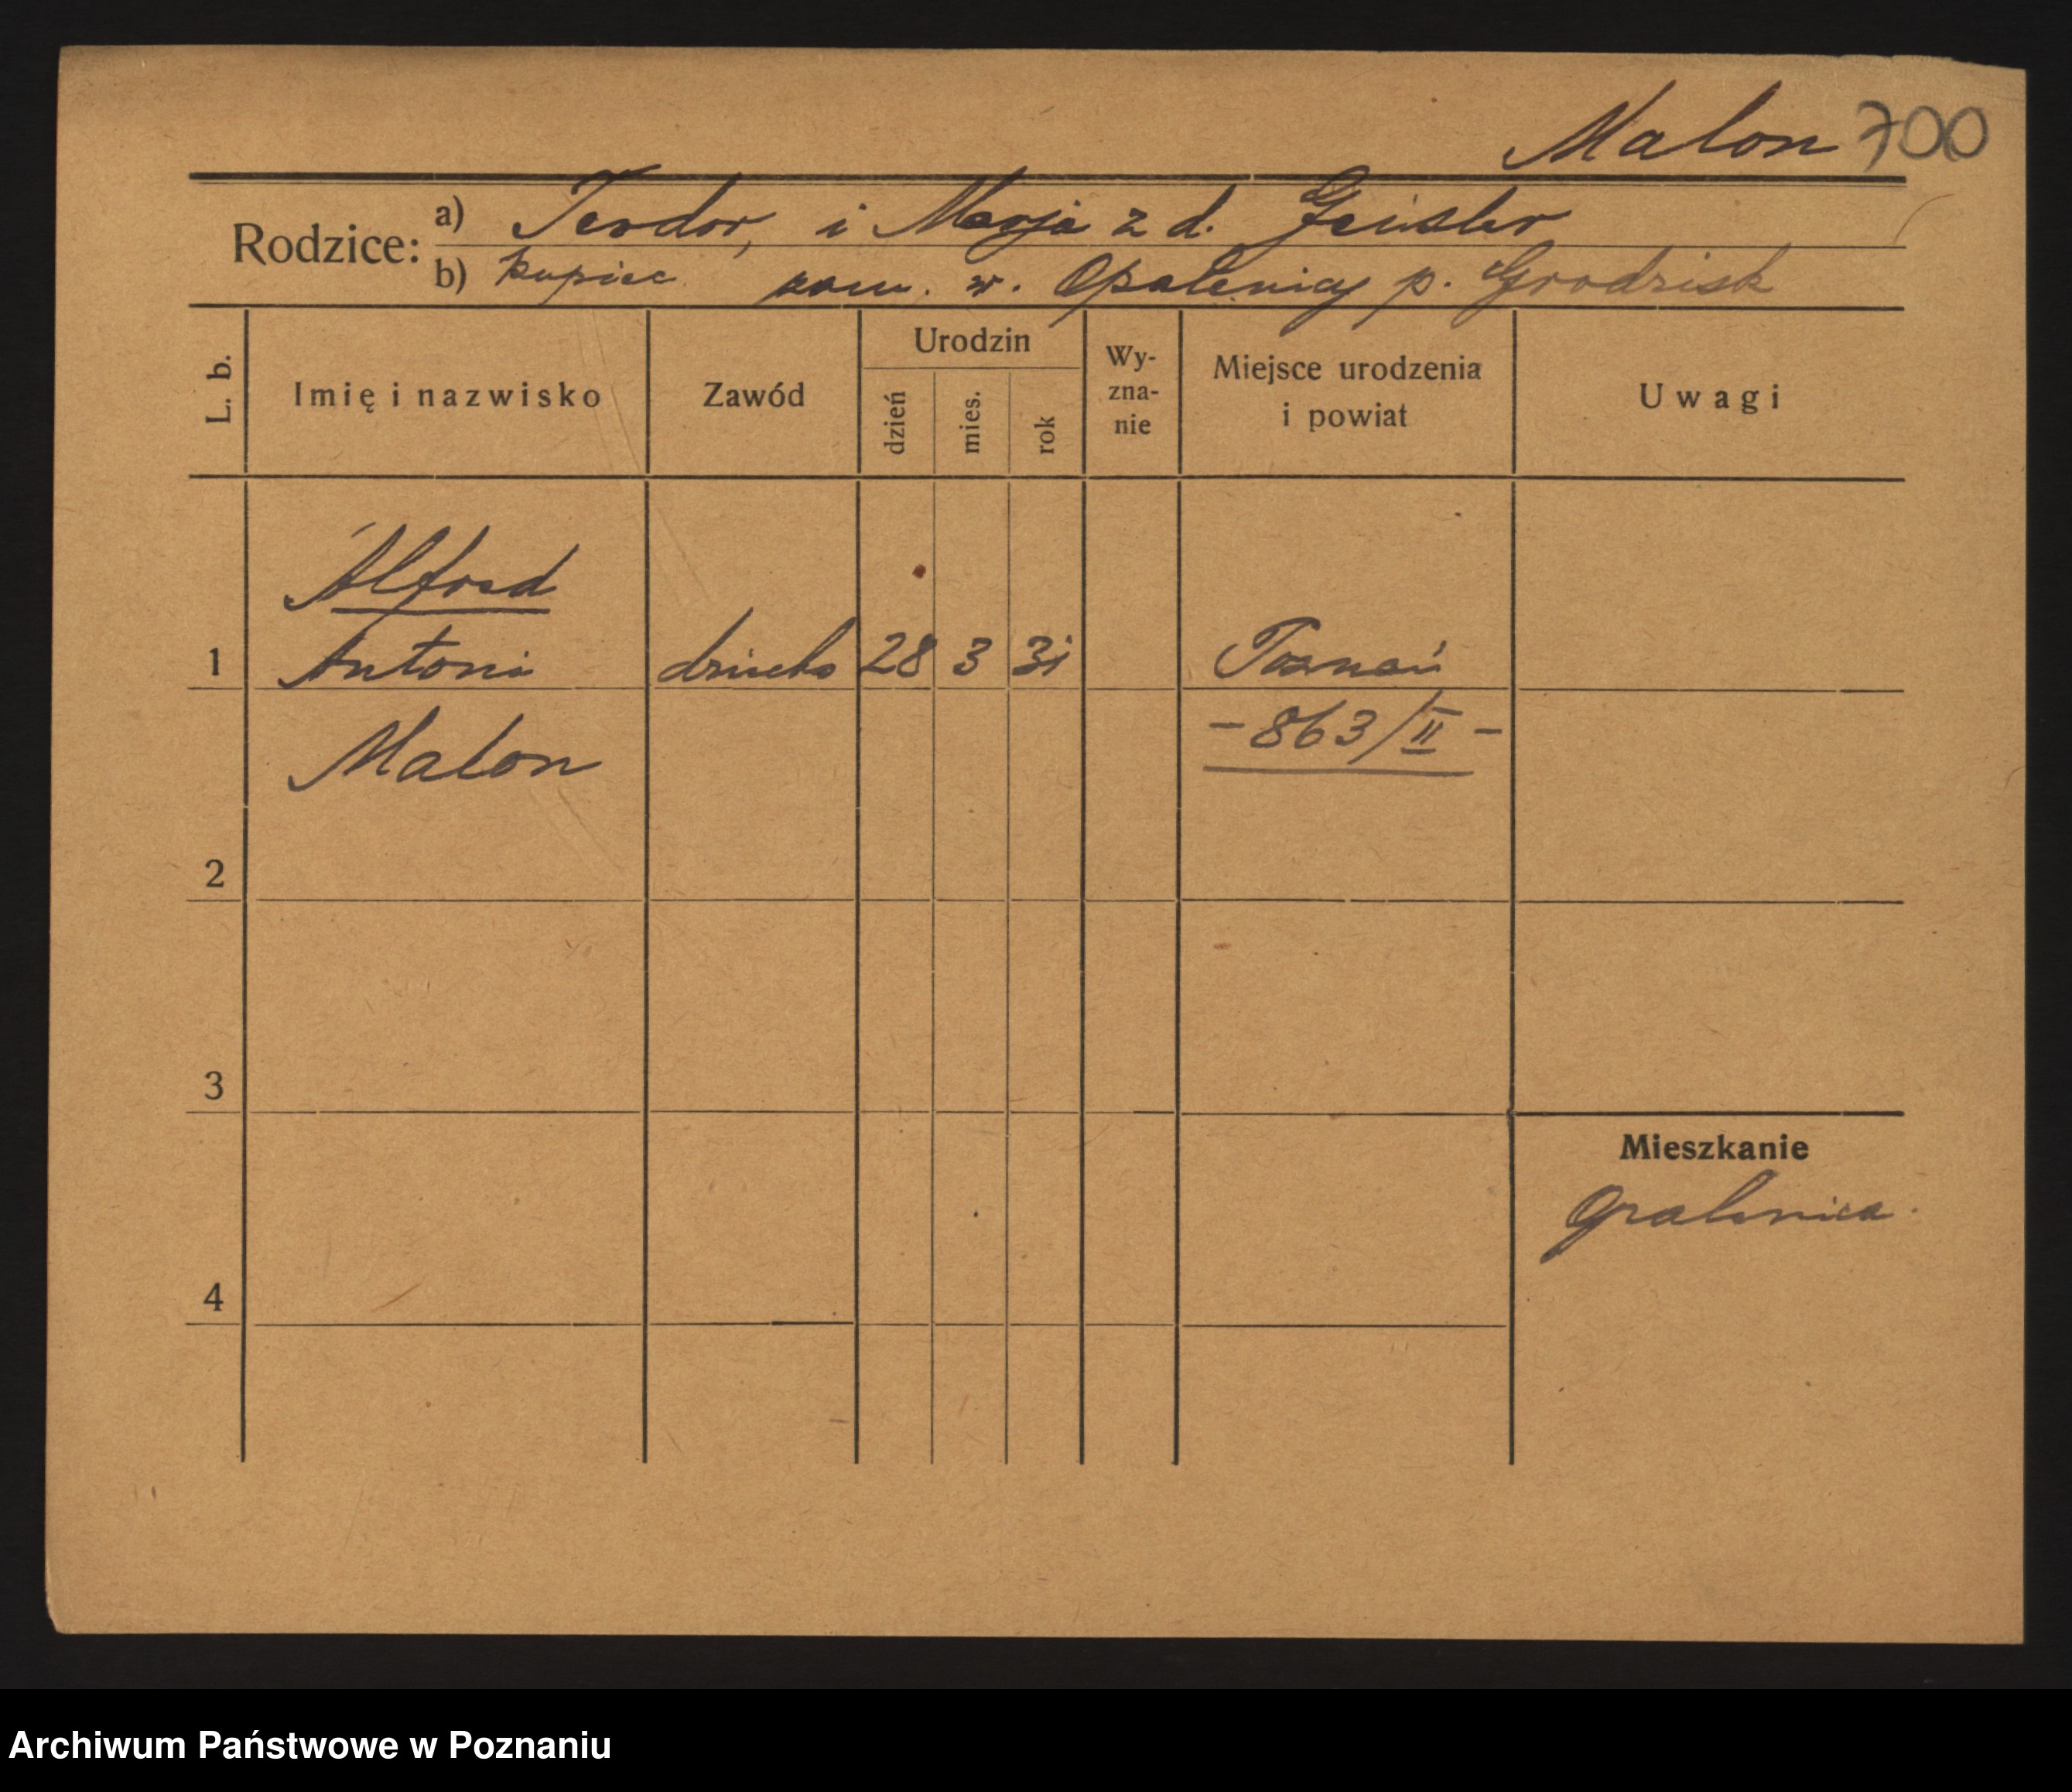 Malon 700
Rodzice: a) Teodor, i Marja z d. Geisler
b) kupiec zam. w. Opalenicy p. Grodzisk
L. b. Imię i nazwisko Zawód Urodzin dzień mies. rok Wy-zna-nie Miejsce urodzenia i powiat Uwagi
Alfred
1 Antoni dziecko 28 3 31 Poznań
Malon - 863/II -
2
3
Mieszkanie
Opalenica.
4
Archiwum Państwowe w Poznaniu